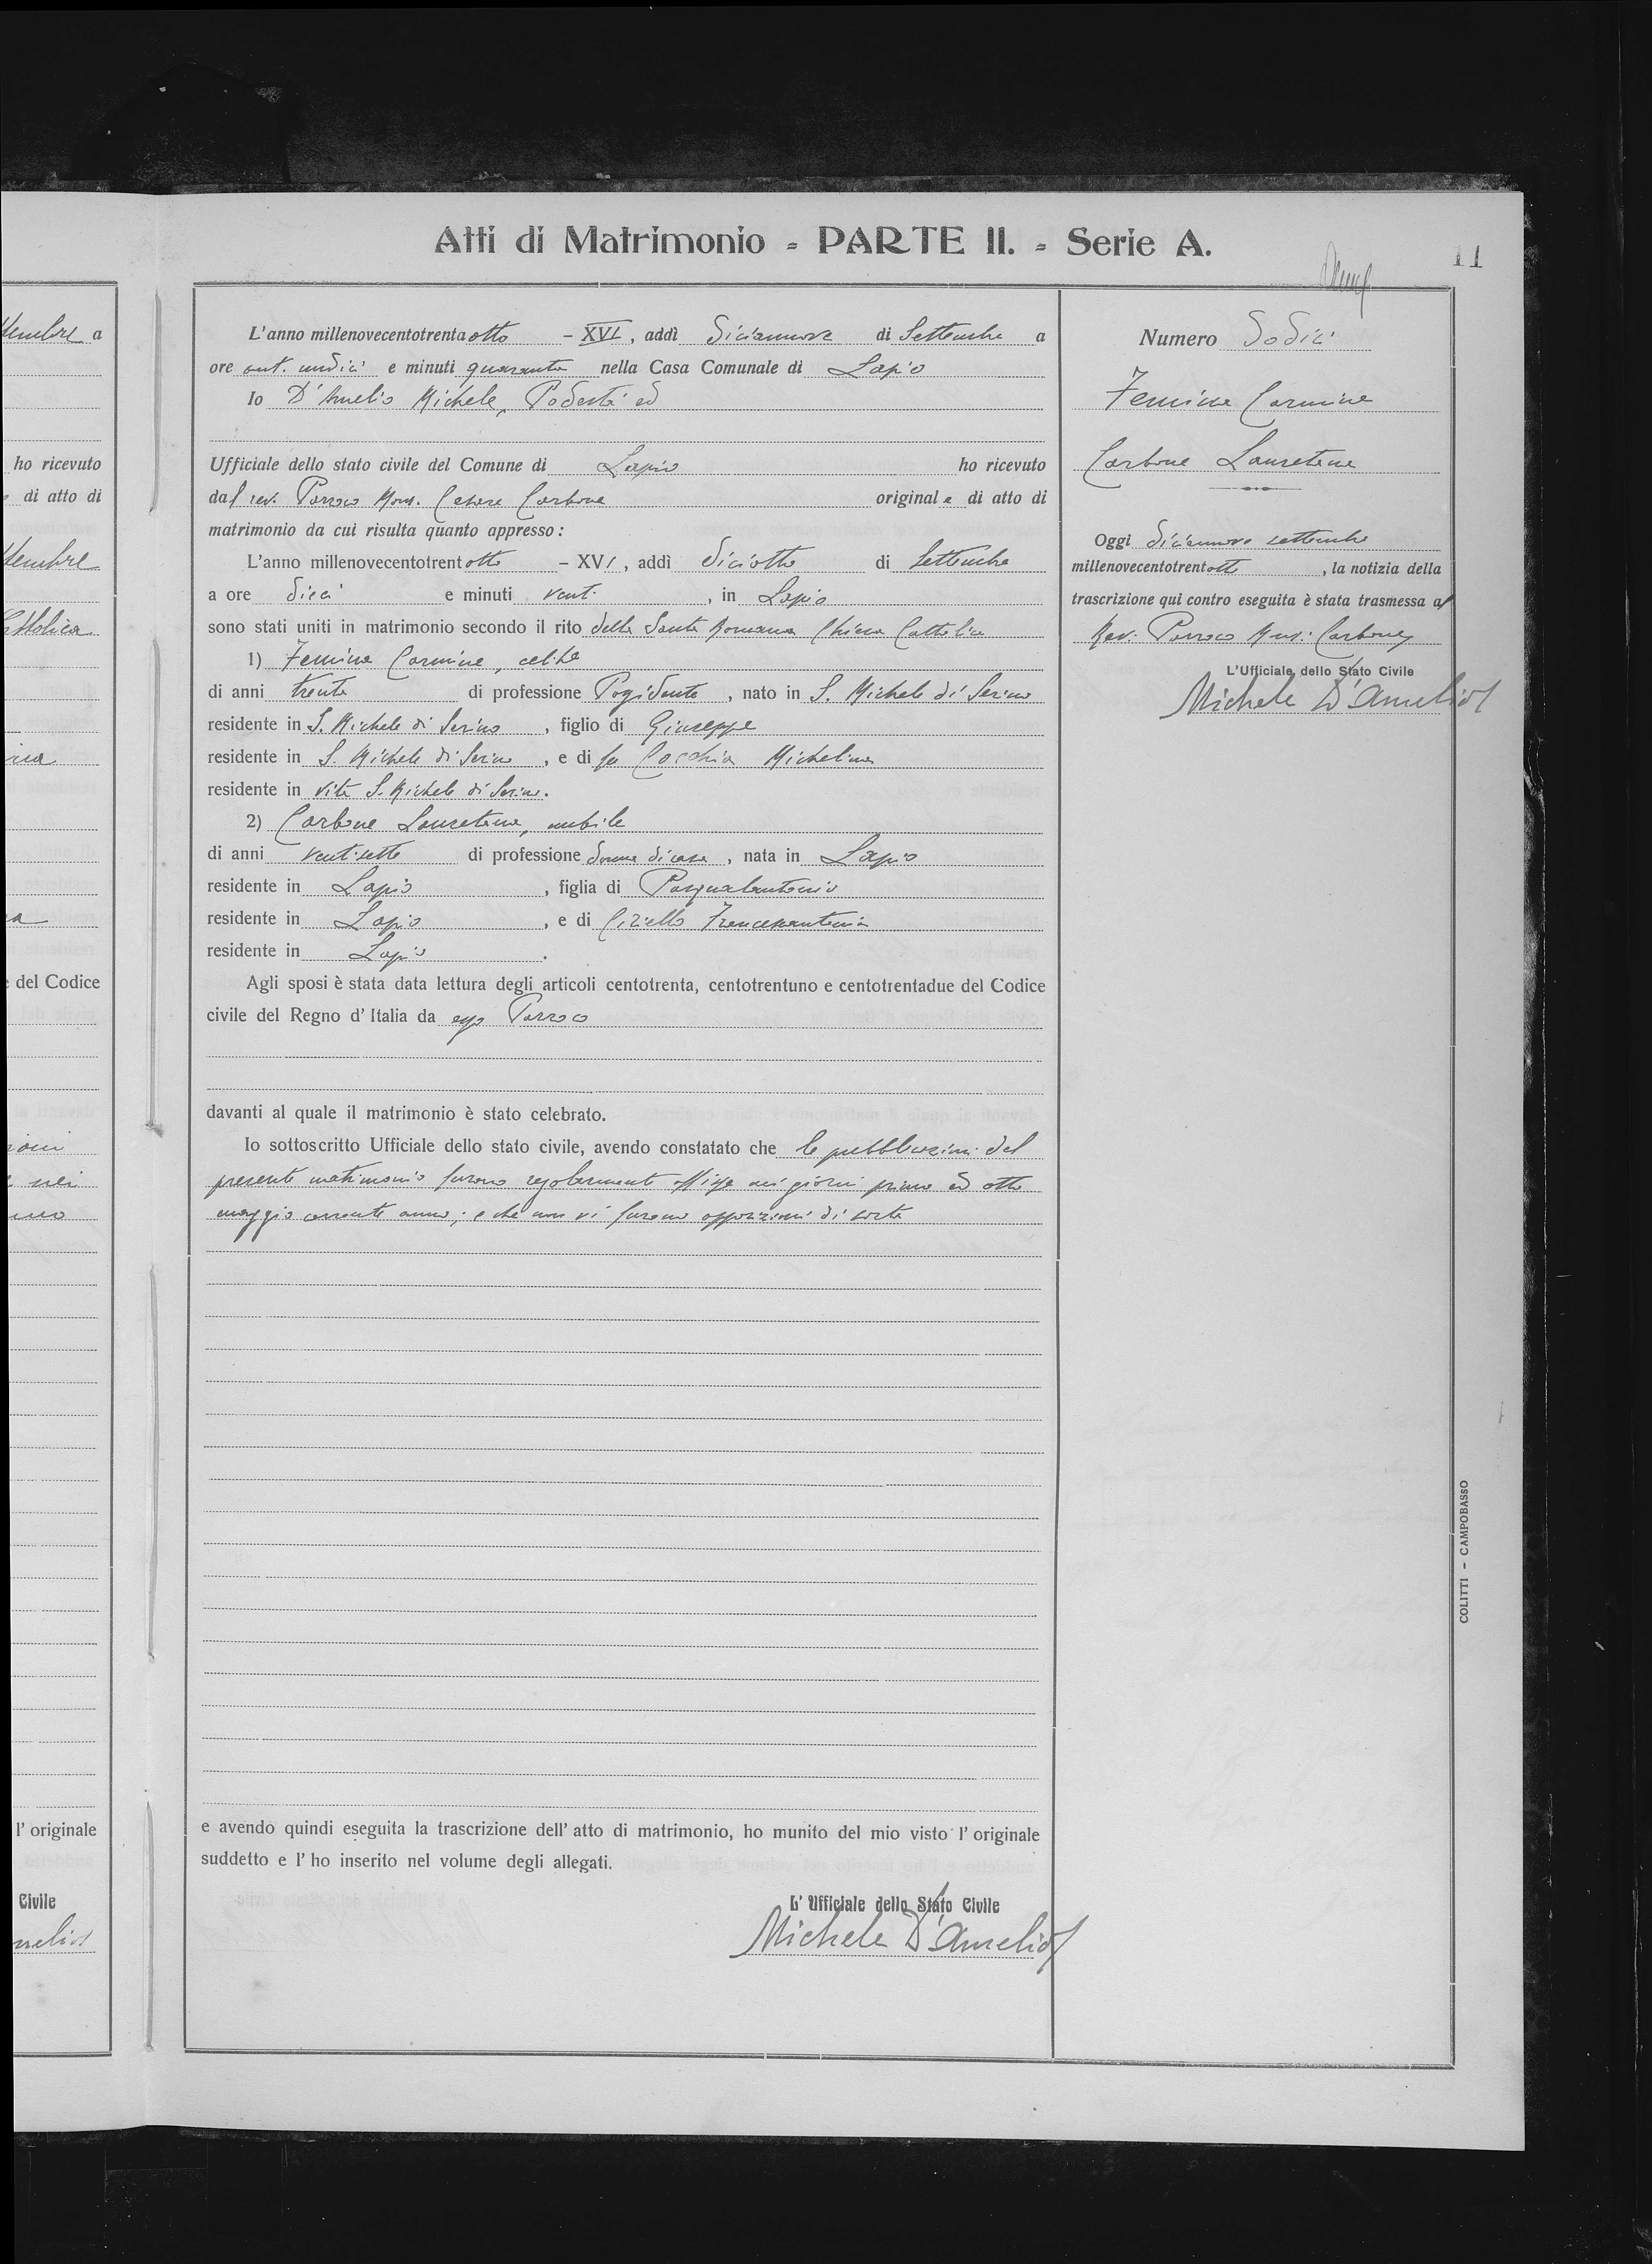 Atti di Matrimonio - PARTE II. - Serie A.
11
L'anno millenovecentotrenta otto - XVI, addì diciannove di Settembre a
ore ant. undici e minuti quaranta nella Casa Comunale di Lapio
Io D'Amelio Michele, Podestà ed
Ufficiale dello stato civile del Comune di Lapio ho ricevuto
dal rev. Parroco Mons. Cesare Carbone originale di atto di
matrimonio da cui risulta quanto appresso:
L'anno millenovecentotrentotto - XVI, addì diciotto di Settembre
a ore dieci e minuti venti, in Lapio
sono stati uniti in matrimonio secondo il rito della Santa Romana Chiesa Cattolica
1) Femina Carmine, celibe
di anni trenta di professione Possidente, nato in S. Michele di Serino
residente in S. Michele di Serino, figlio di Giuseppe
residente in S. Michele di Serino, e di fu Cocchia Michelina
residente in vita S. Michele di Serino.
2) Carbone Lauretana, nubile
di anni ventisette di professione donna di casa, nata in Lapio
residente in Lapio, figlia di Pasqualantonio
residente in Lapio, e di Ciriello Francescantonia
residente in Lapio.
Agli sposi è stata data lettura degli articoli centotrenta, centotrentuno e centotrentadue del Codice
civile del Regno d'Italia da esso Parroco
davanti al quale il matrimonio è stato celebrato.
Io sottoscritto Ufficiale dello stato civile, avendo constatato che le pubblicazioni del
presente matrimonio furono regolarmente affisse nei giorni primo ed otto
maggio corrente anno; e che non vi furono opposizioni di sorta
e avendo quindi eseguita la trascrizione dell'atto di matrimonio, ho munito del mio visto l'originale
suddetto e l'ho inserito nel volume degli allegati.
L'Ufficiale dello Stato Civile
Michele D'Amelio
Numero Dodici
Femina Carmine
Carbone Lauretana
Oggi diciannove settembre
millenovecentotrentotto, la notizia della
trascrizione qui contro eseguita è stata trasmessa al
Rev. Parroco Mons. Carbone
L'Ufficiale dello Stato Civile
Michele D'Amelio
COLITTI - CAMPOBASSO
ttembre a
ho ricevuto
di atto di
ttembre
Cattolica
del Codice
l'originale
Civile
melio